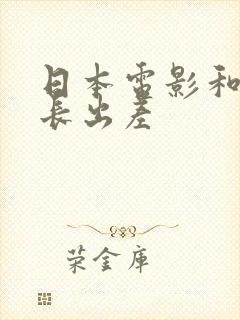 日本电影和
长出差
荣金库